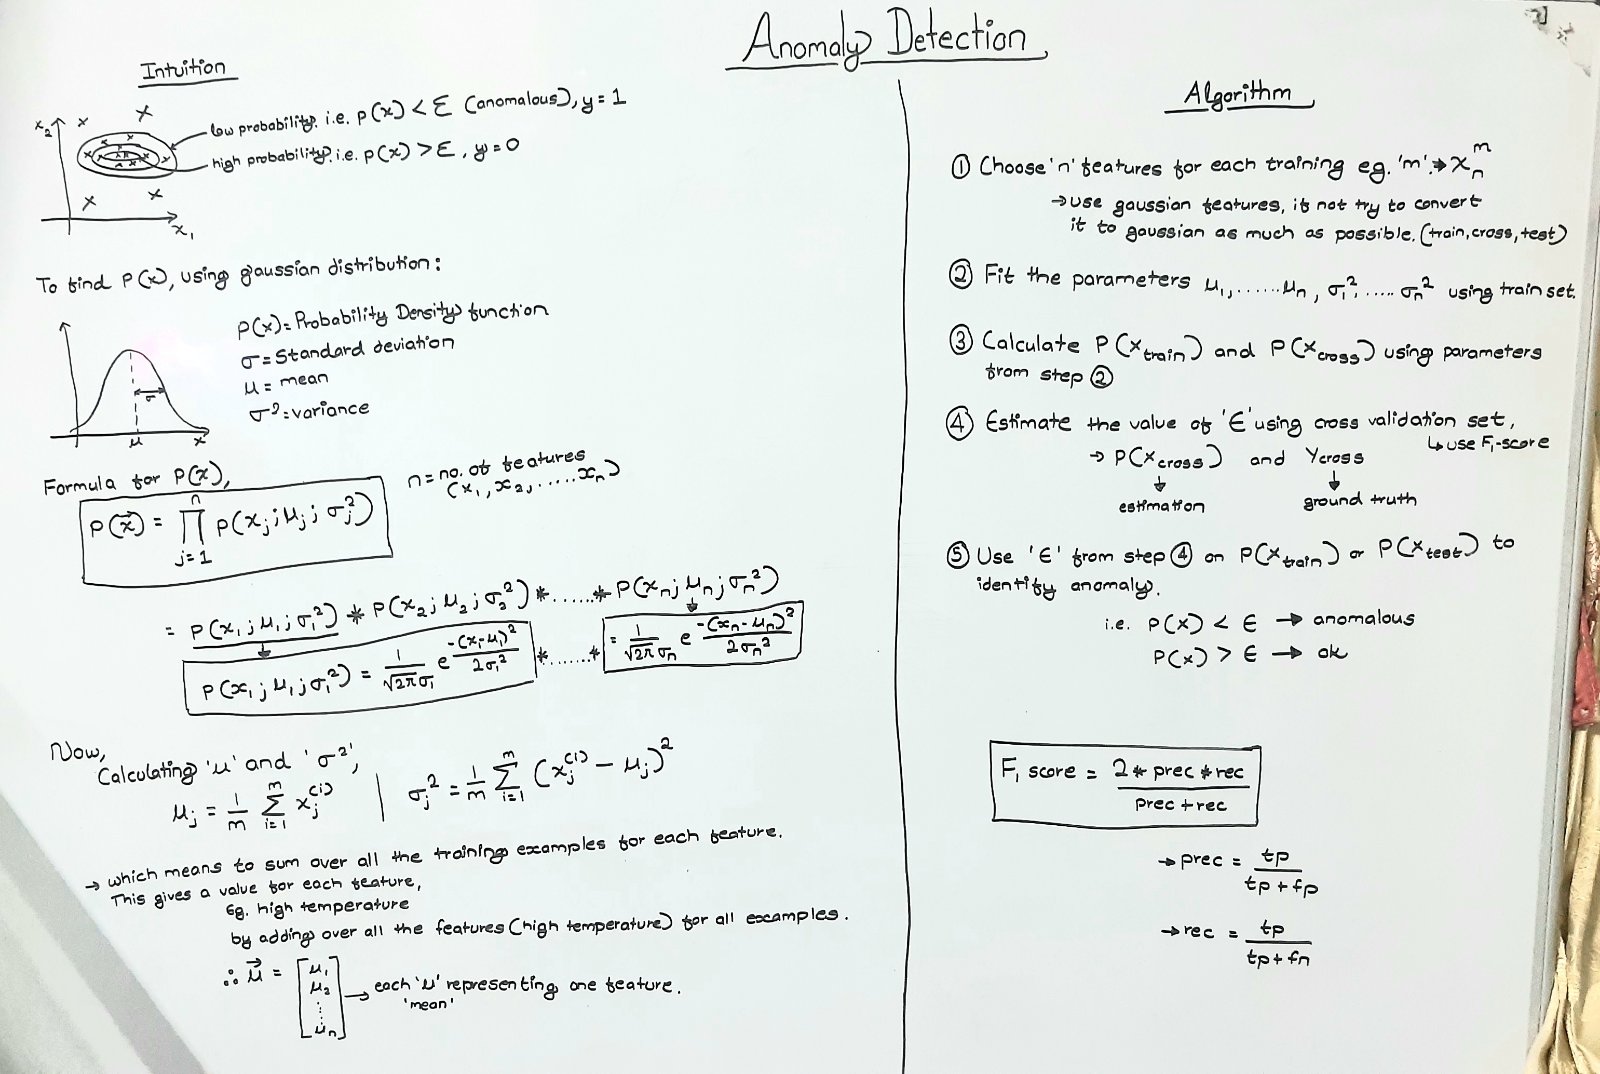 Anomaly Detection
Intuition
x₂
x₁
low probability. i.e. p(x) < ε (anomalous), y = 1
high probability. i.e. p(x) > ε, y = 0
To find P(x), using gaussian distribution:
σ
μ
x
p(x) = Probability Density function
σ = Standard deviation
μ = mean
σ² = variance
Formula for P(x),
n = no. of features
(x₁, x₂, ..... xₙ)
p(x⃗) = ∏ⱼ₌₁ⁿ p(xⱼ; μⱼ; σⱼ²)
= p(x₁; μ₁; σ₁²) * P(x₂; μ₂; σ₂²) * ...... * P(xₙ; μₙ; σₙ²)
p(x₁; μ₁; σ₁²) = 1/(√2π σ₁) e^(-(x₁-μ₁)²/2σ₁²) * ....... * = 1/(√2π σₙ) e^(-(xₙ-μₙ)²/2σₙ²)
Now,
Calculating 'μ' and 'σ²',
μⱼ = 1/m Σᵢ₌₁ᵐ xⱼ⁽ⁱ⁾ | σⱼ² = 1/m Σᵢ₌₁ᵐ (xⱼ⁽ⁱ⁾ - μⱼ)²
→ which means to sum over all the training examples for each feature.
This gives a value for each feature,
Eg. high temperature
by adding over all the features (high temperature) for all examples.
∴ μ⃗ = [μ₁ μ₂ ⋮ μₙ] → each 'μ' representing one feature.
'mean'
Algorithm
① Choose 'n' features for each training eg. 'm'. → xₙᵐ
→ use gaussian features, if not try to convert
it to gaussian as much as possible. (train, cross, test)
② Fit the parameters μ₁, ...... μₙ, σ₁², ..... σₙ² using train set.
③ Calculate P(x_train) and P(x_cross) using parameters
from step ②
④ Estimate the value of 'ε' using cross validation set,
↳ use F₁-score
→ P(x_cross) and Y_cross
estimation
ground truth
⑤ Use 'ε' from step ④ on P(x_train) or P(x_test) to
identify anomaly.
i.e. P(x) < ε → anomalous
P(x) > ε → ok
F₁ score = 2 * prec * rec / prec + rec
→ prec = tp / tp + fp
→ rec = tp / tp + fn